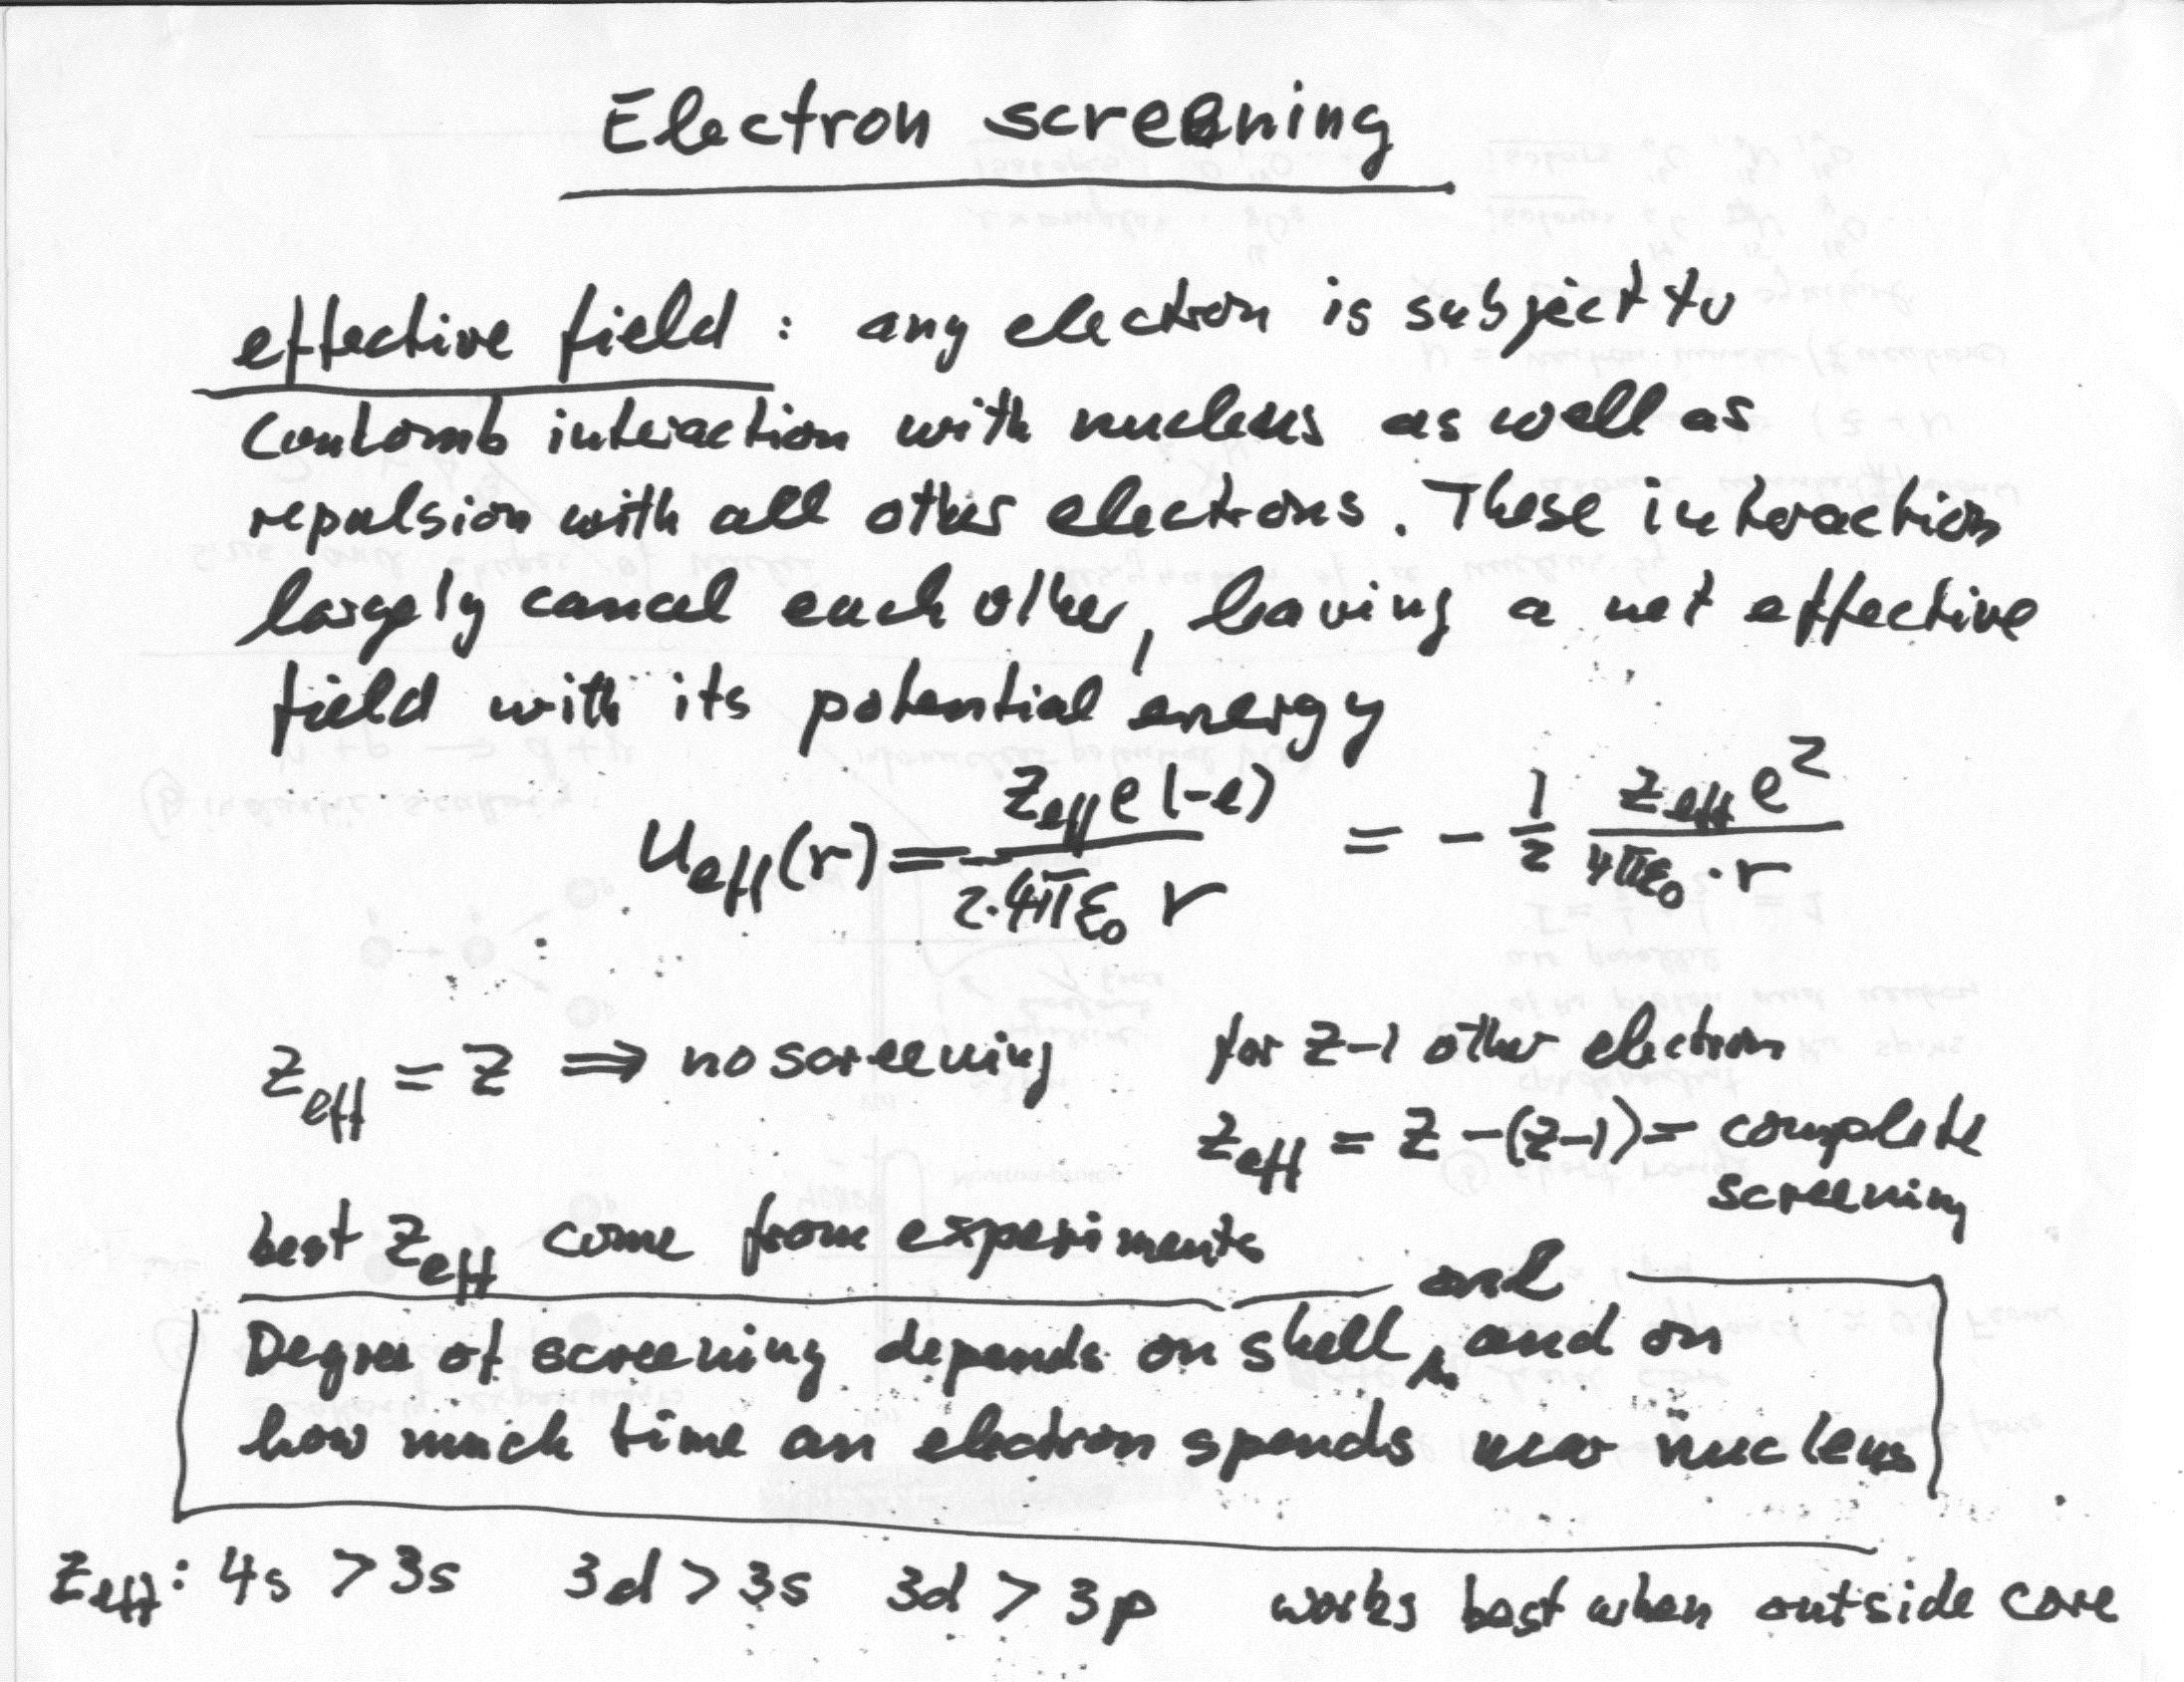 Electron screening
effective field : any electron is subject to
Coulomb interaction with nucleus as well as
repulsion with all other electrons. These interaction
largely cancel each other, leaving a net effective
field with its potential energy
U_eff(r) = Z_eff e(-e) / 2·4πε₀ r = - 1/2 Z_eff e² / 4πε₀·r
Z_eff = Z ⇒ no screening
for Z-1 other electron
Z_eff = Z -(Z-1) = complete
screening
best Z_eff come from experiments
and
Degree of screening depends on shell, and on
how much time an electron spends near nucleus
Z_eff: 4s > 3s 3d > 3s 3d > 3p works best when outside core